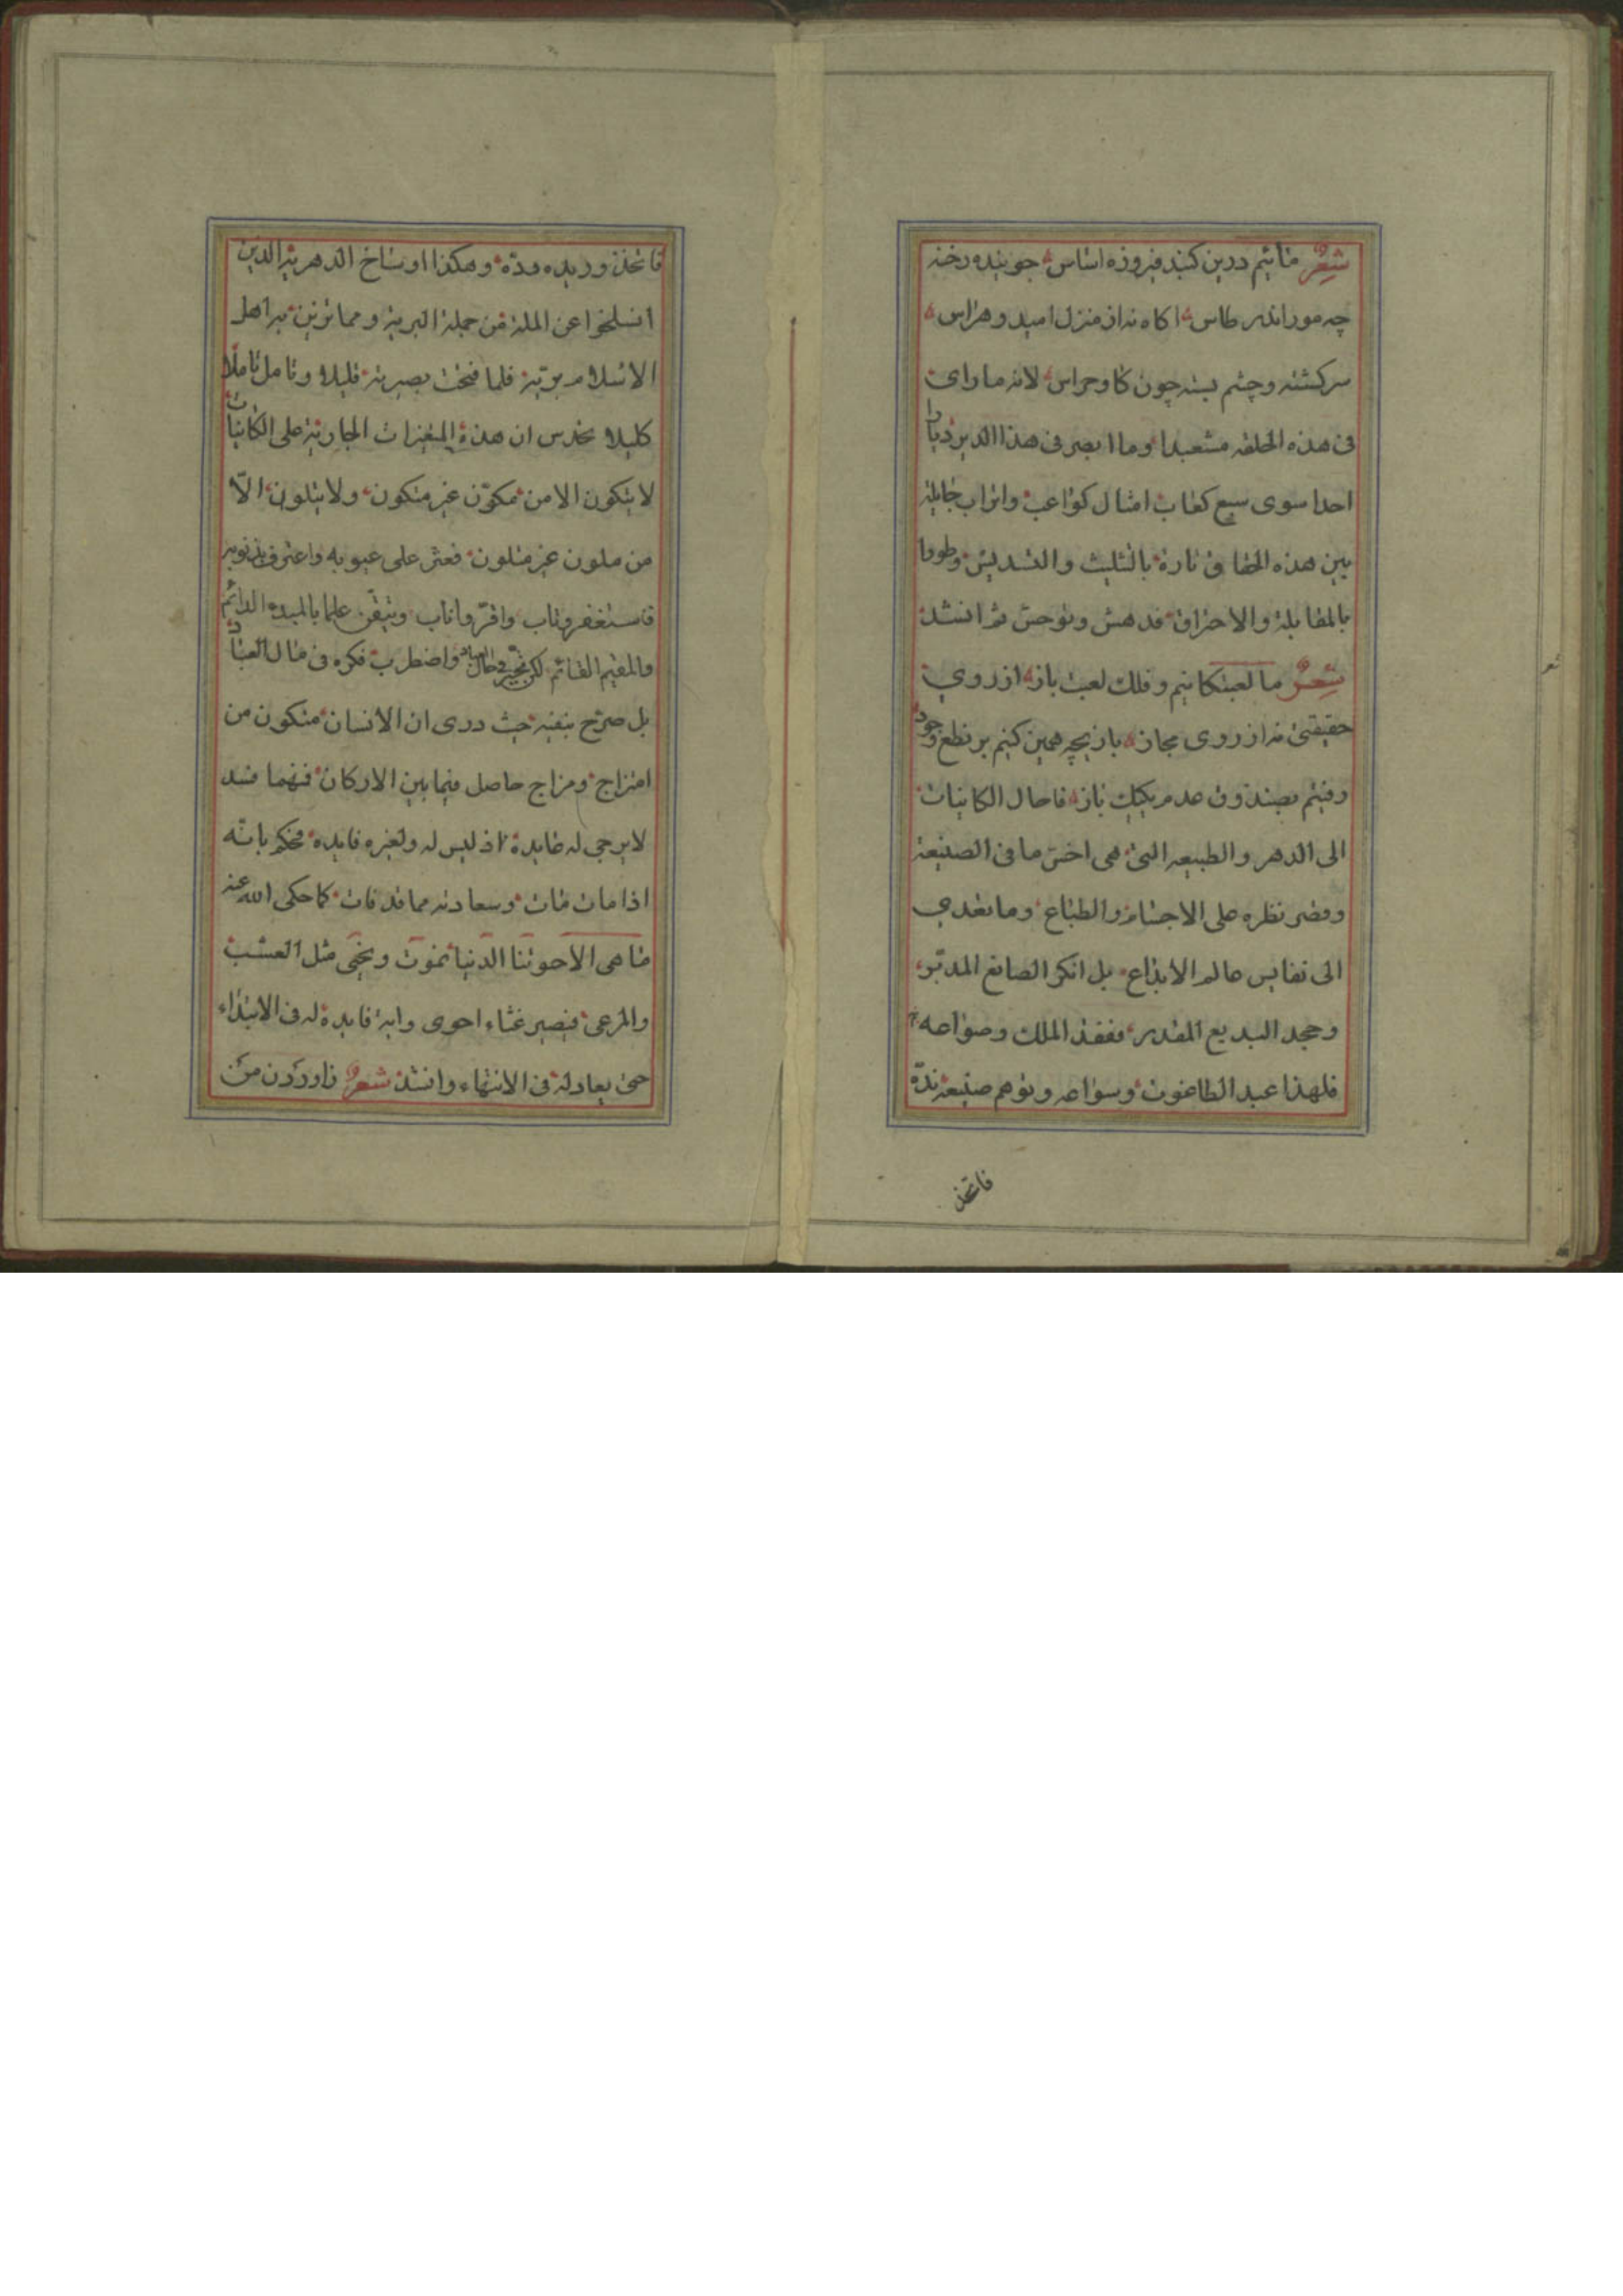 شعر مائيم درين كنبد فيروزه اساس جوينده رخنه
چه مور اندر طاس اكاه نه از منزل اميد و هراس
سركشته و چشم بسته چون كاو خراس لانه ما راى
فى هذه الحلقه مشعبدا وما ابصر فى هذا الدير ديارا
احدا سوى سبع كعاب امثال كواعب واتراب جايلة
بين هذه الحقاق تارة بالتثليث والتسديس وطورا
بالمقابلة والاحتراق فدهش وتوحش ثم انشد
شعر ما لعبتكانيم و فلك لعبت باز از روي
حقيقتى نه از روى مجاز بازيچه همين كنيم بر نطع وجود
رفتيم بصندوق عدم يكيك باز فاحال الكاينات
الى الدهر والطبيعه التى هى اخس ما فى الصنيعة
وقصر نظره على الاجسام والطباع وما تعدي
الى نفايس عالم الابداع بل انكر الصانع المدبّر
وجحد البديع المقدر ففقد الملك وصواعه
فلهذا عبد الطاغوت وسواعه وتوهم صنيعة ندّه
فاتخذ
فاتخذ وريده ودّه وهكذا اوساخ الدهرية الذين
انسلخوا عن الملة من جملة البرية ومما تزين به اهل
الاسلام بريّة فلما فتحت بصيرته قليلا وتامل تاملا
كليلا تحدس ان هذه المتغيرات الجارية على الكاينات
لا يتكون الا من مكوّن غير متكون ولا يتلون الّا
من ملون غير متلون فعثر على عيوبه واعترف بذنوبه
فاستغفر وتاب واقرّ واناب وتيقّن علما بالمبدء الدائم
والمقيم القائم لكن تحيّر فى حال المعاد واضطرب فكره فى مال العباد
بل صرّح بنفيه حيث درى ان الانسان متكون من
امتزاج ومزاج حاصل فيما بين الاركان فمهما فسد
لا يرجى له عايدة اذ ليس له ولغيره فايده فحكم بانّه
اذا مات مات وسعادته مما قد فات كما حكى الله عنه
ما هى الا حيوتنا الدنيا نموت ونحيى مثل العشب
والمرعى فيصير غثاء احوى واية فايدة له فى الابتداء
حتى يعاد له فى الانتهاء وانشد شعر زاوردن من